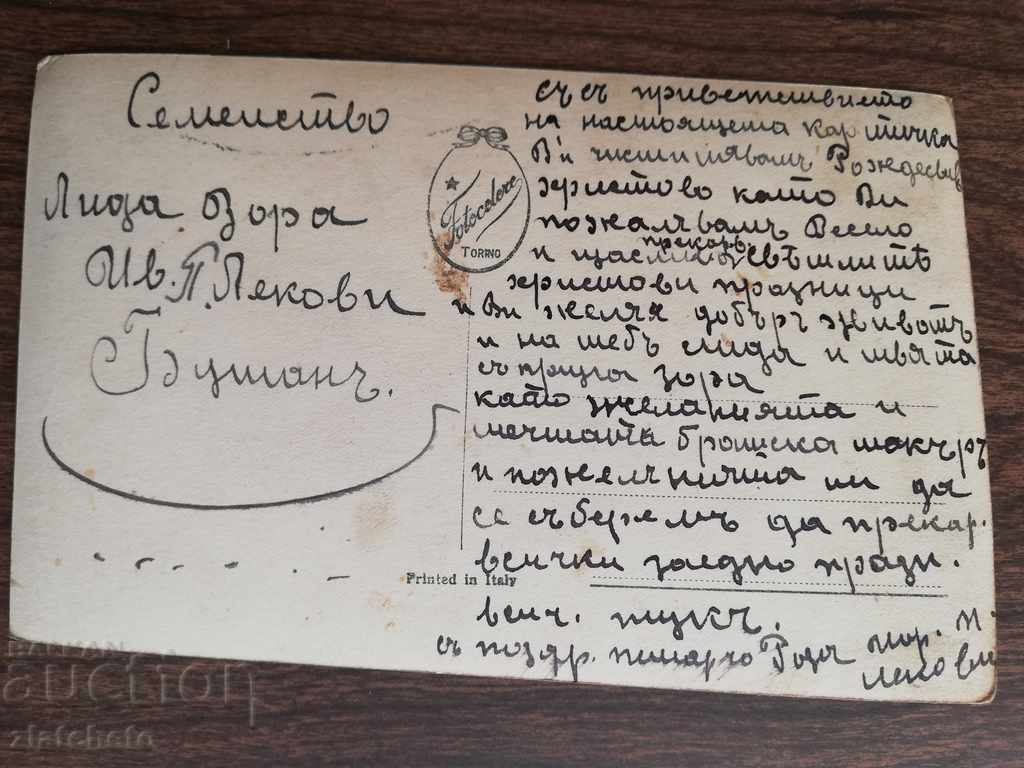 Семейство
Лида Зора
Ив. П. Лекови
Тутанъ.
Fotocelere
Torino
Printed in Italy
съ съ приветствието
на настоящета картичка
Ви Рождество
христово като Ви
пожелъвамъ Весело
и щасливо прекарв. свѣтлитѣ
христови празници
и Ви желая добъръ животъ
и на тебъ лида и твята
съпруга зора
като желанията и
братска
и ни да
се съберемъ да прекар.
всички заедно празн.
велч. тукъ.
съ поздр. Рада
Лекови
BALKAN
auction
zlatcheto